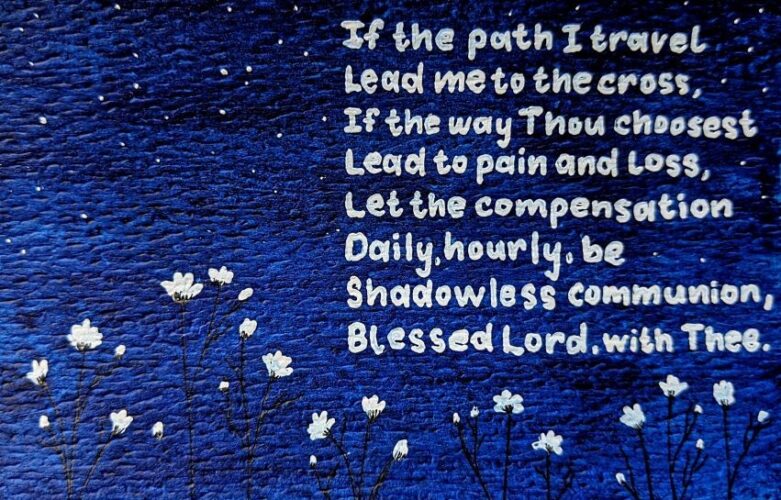 If the path I travel
Lead me to the cross,
If the way Thou choosest
Lead to pain and loss,
Let the compensation
Daily, hourly, be
Shadowless communion,
Blessed Lord, with Thee.